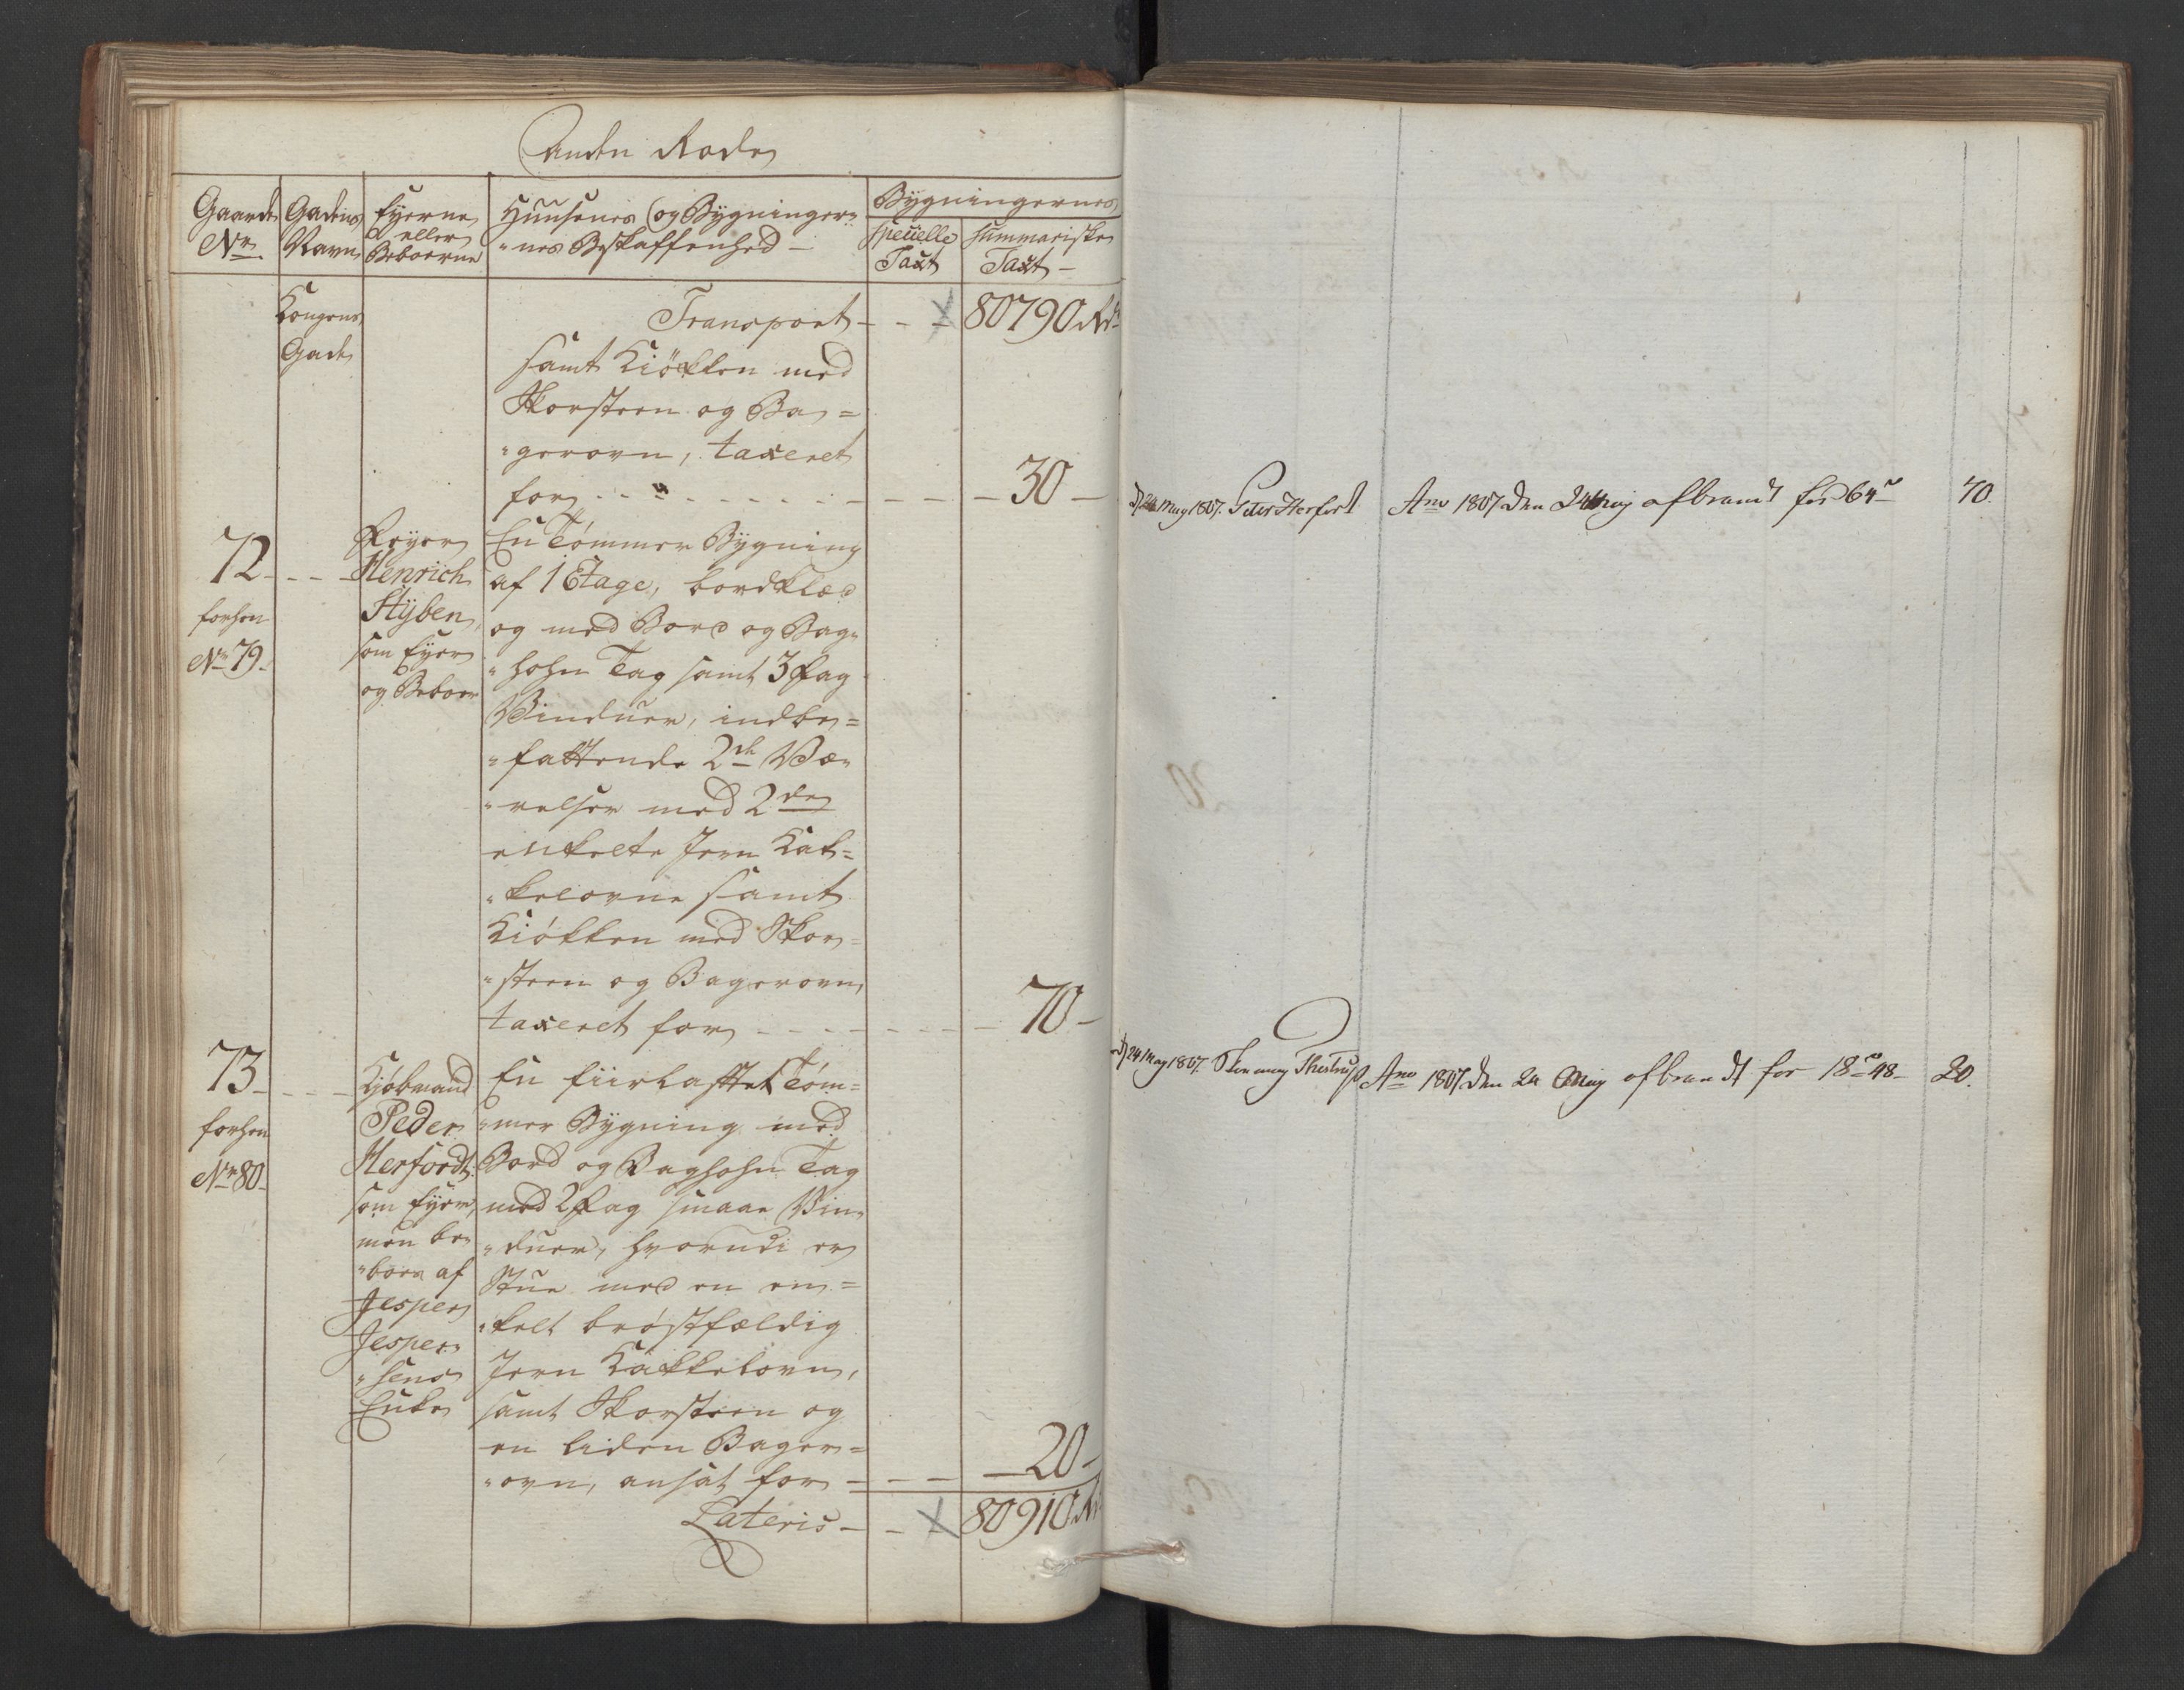 Anden Rode
Gaardens No.
Gadens Navn
Eyerne eller Beboerne
Huusenes og Bygninger-
nes Beskaffenhed
Bygningernes
specielle Taxt
summariske Taxt
Kongens
Gade
Transport - - 80790 Rd
samt Kiökken med
Skorsteen og Ba=
gerovn, taxeret
for - - - 30 -
72 - - -
forhen
No 79.
Henrich
Stÿben,
som Eyer
og Beboer
En Tömmer Bygning
af 1 Etage, bordklæd
og med Bord og Bag-
hohn Tag samt 3 Fag
Vinduer, indbe=
fattende 2de Væ-
relser med 2de
enkelte Jern Kak=
kelovne samt
Kiökken med Skor=
steen og Bagerovn,
taxeret for - - - 70 -
73 - - -
forhen
No 80.
Kjöbmand
Peder
Herfordt
som Eyer,
men be-
boes af
Jesper
Jesper-
sens
Enke
En fiirlafttet Töm=
mer Bygning med
Bord og Baghohn Tag
med 2 Fag smaae Vin-
duer, hvorudi er
Stue med en en=
kelt bröstfældig
Jern Kakkelovn,
samt Skorsteen og
en liden Bager=
ovn, ansat for - - - 20 -
Lateris - - 80910 Rd
d 24 May 1807. Peter Herfort Ano 1807 den 24 May afbrandt for 64 70.
d 24 May 1807. Thestrup Ano 1807 den 24 May afbrandt for 18 - 48 - 20.